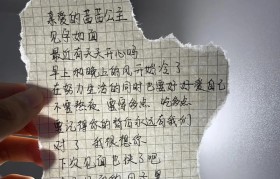 亲爱的苗苗公主
见字如面
最近有天天开心吗
早上和晚上的风开始冷了
在努力生活的同时也要好好爱自己
不要熬夜 要穿多点 吃多点
要记得你的背后永远有我们
对了 我很想你
下次见面也快了吧